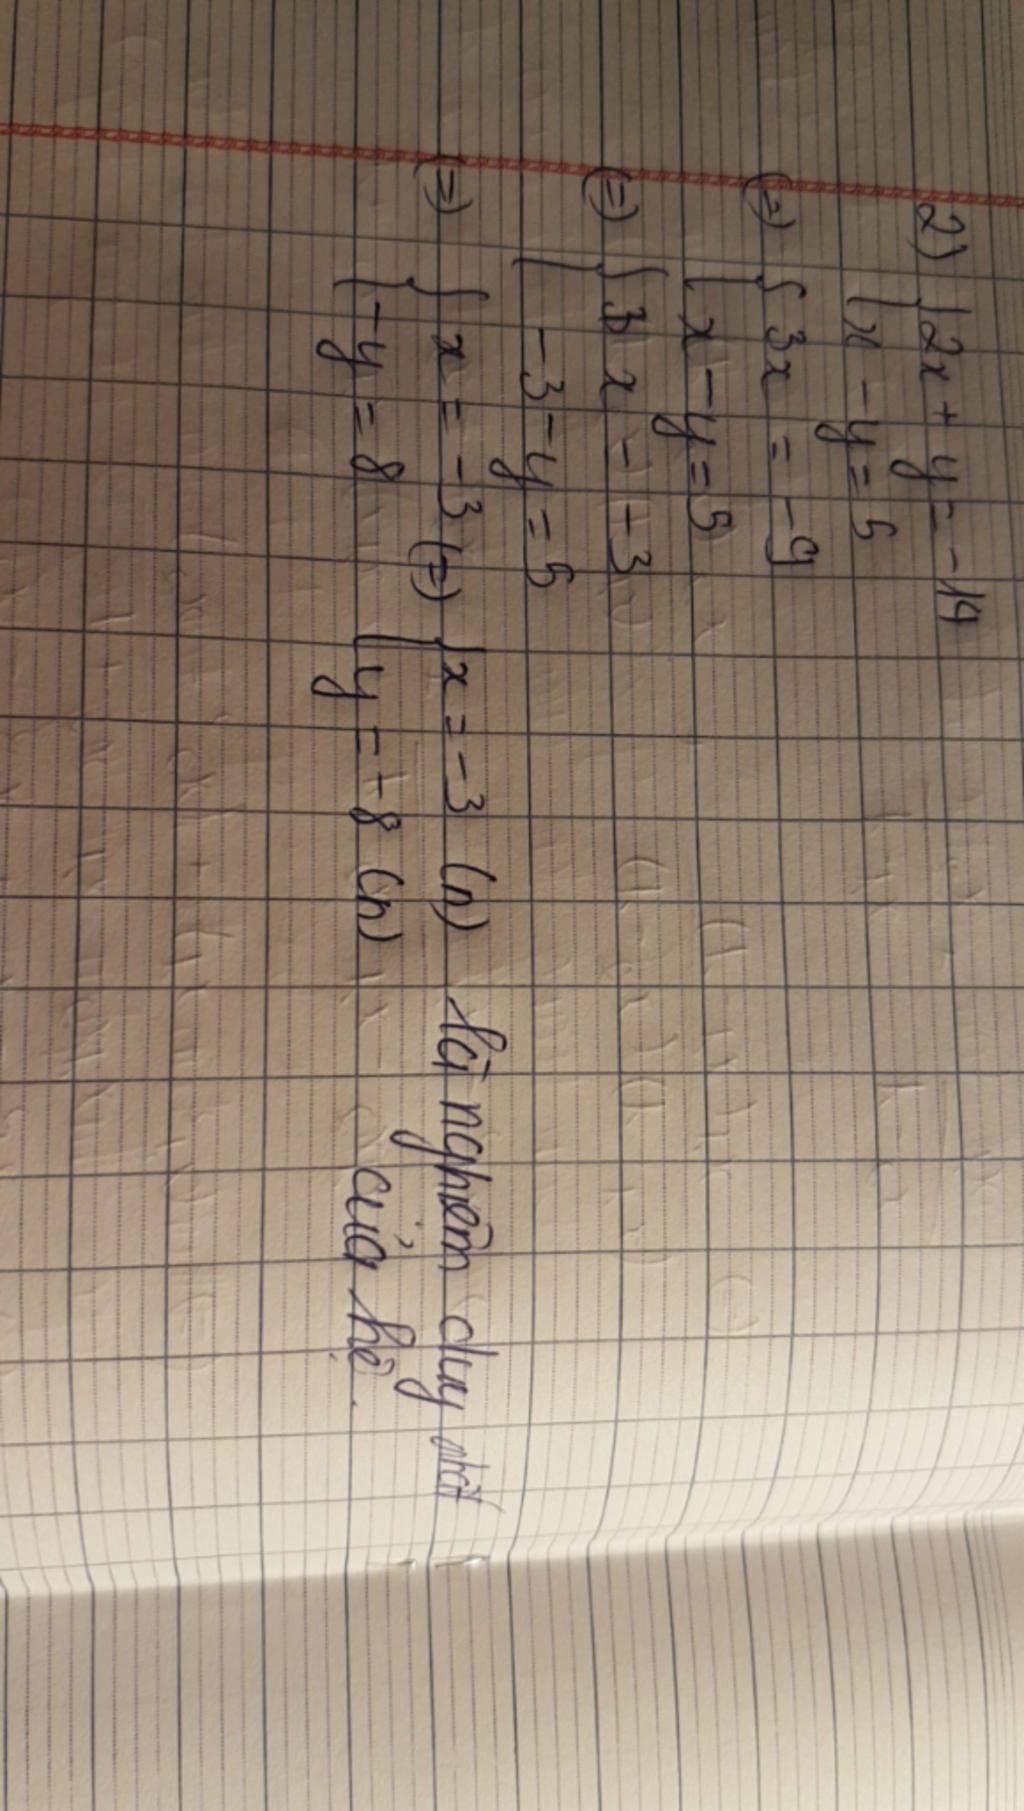 2) { 2x + y = -14
{ x - y = 5
(=) { 3x = -9
{ x - y = 5
(=) { x = -3
{ -3 - y = 5
(=) { x = -3 (=) { x = -3 (n) là nghiệm duy nhất
{ -y = 8 { y = -8 (n) của hệ.